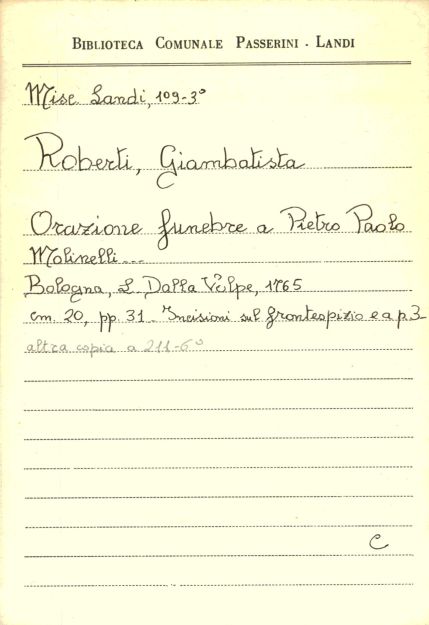 BIBLIOTECA COMUNALE PASSERINI - LANDI
Misc Landi, 109-3°
Roberti, Giambatista
Orazione funebre a Pietro Paolo
Molinelli...
Bologna, L Dalla Volpe, 1765
cm. 20, pp. 31. Incisioni sul frontespizio e a p 3-
altra copia a 211-6°
C